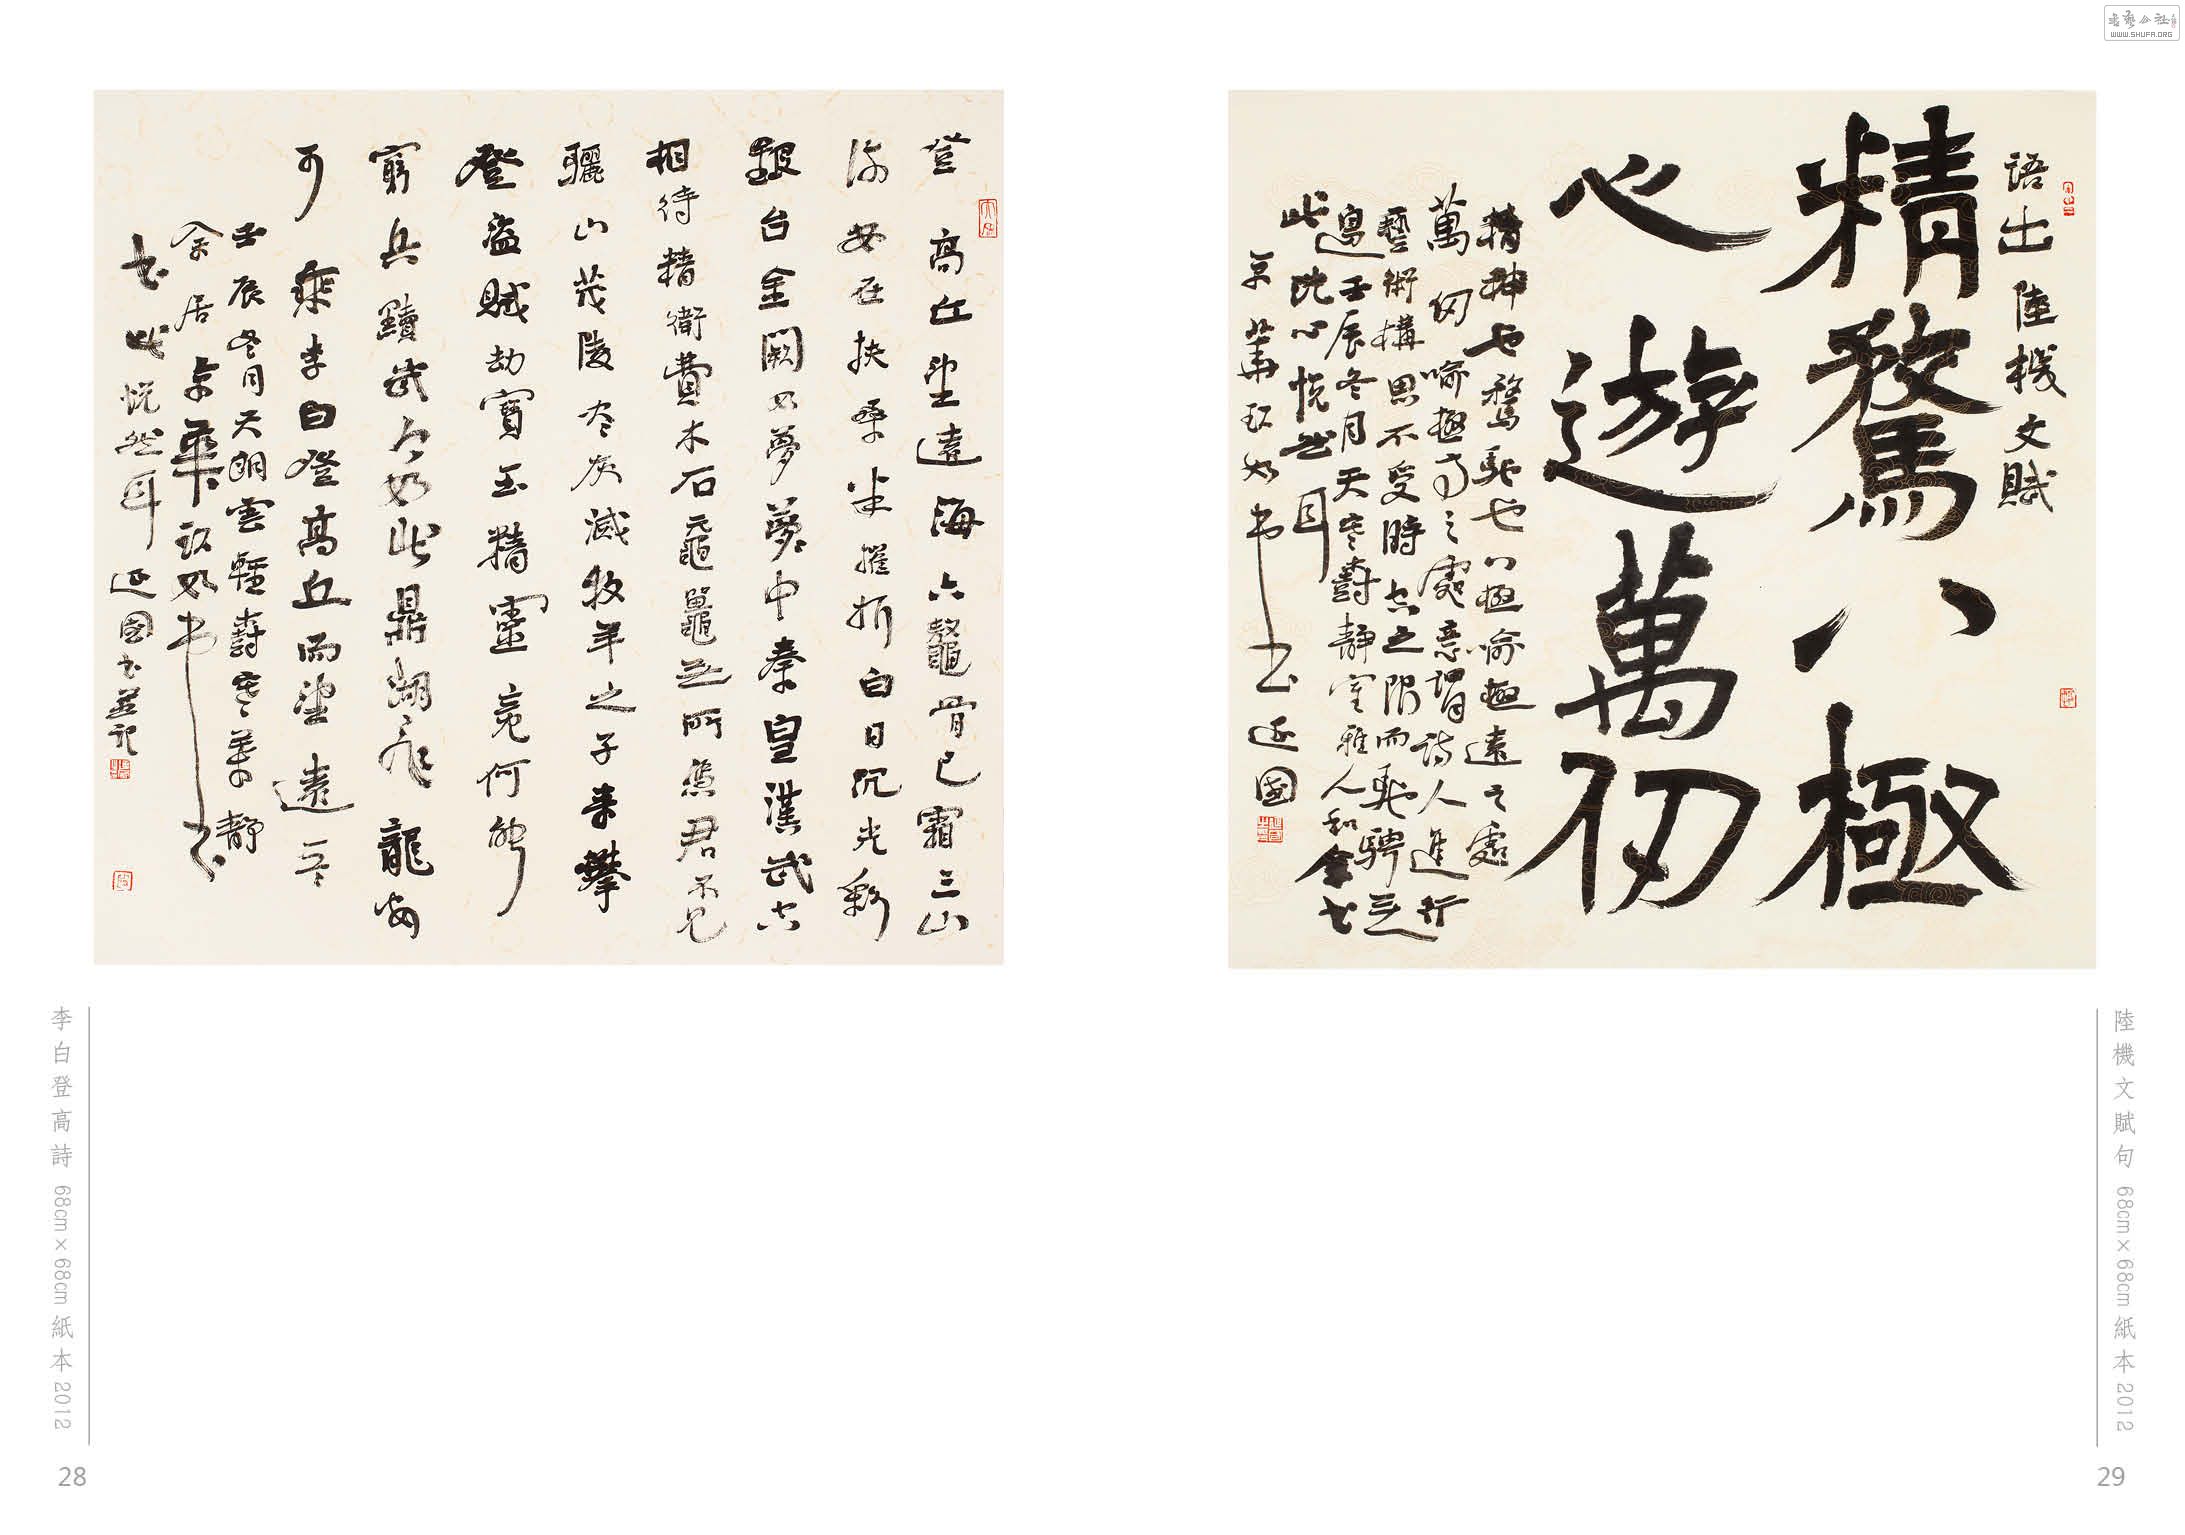 書藝公社
WWW.SHUFA.ORG
語出陸機文賦
精騖八極
心遊萬仞
精神也騖馳也八極喻極遠之處
萬仞喻極高之處意謂詩人進行
藝術構思不受時空之限而馳騁
壬辰冬月天寒
靜室雅人和
此 悅然耳
延國
陸機文賦句 68cm×68cm 紙本 2012
29
登高丘望遠海六鰲骨已霜三山
流安在扶桑半摧折白日沉光彩
銀台金闕如夢夢中秦皇漢武空
相待精衛費木石黿鼉無所憑君不見
驪山茂陵盡灰滅牧羊之子來攀
登盜賊劫寶玉精靈竟何能
窮兵黷武今如此鼎湖飛龍安
可乘李白登高丘而望遠
壬辰冬月天朗雲輕 靜
余居京華
書此悅然耳延國書並記
李白登高詩 68cm×68cm 紙本 2012
28